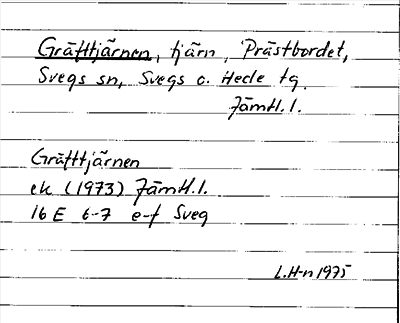 Gräfttjärnen, tjärn, Prästbordet,
Svegs sn, Svegs o. Hede tg.
Jämtl. l.
Gräfttjärnen
ek (1973) Jämtl. l.
16 E 6-7 e-f Sveg
L.H-n 1975